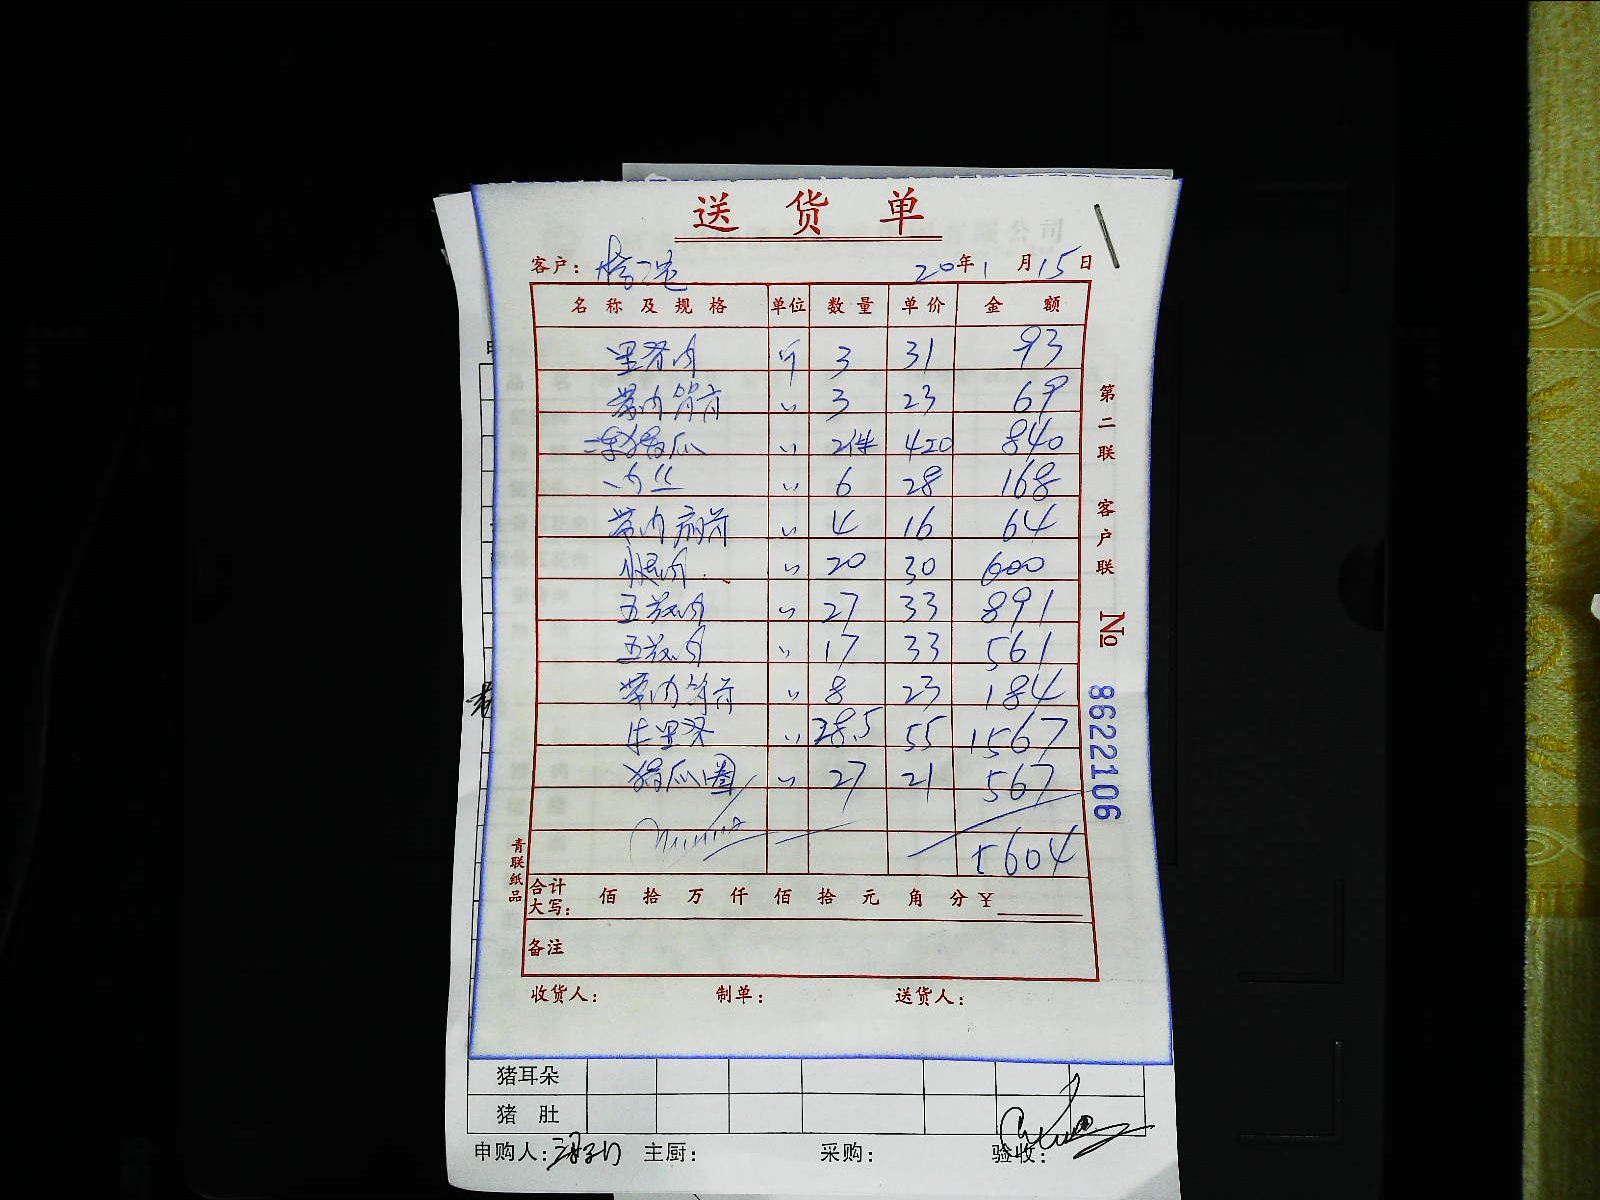 送货单
客户： 20年1月15日
名称及规格 单位 数量 单价 金额
里脊肉 斤 3 31 93
带肉筒骨 〃 3 23 69
冻猪爪 〃 2件 420 840
肉丝 〃 6 28 168
带肉扇骨 〃 4 16 64
腿肉 〃 20 30 600
五花肉 〃 27 33 891
五花肉 〃 17 33 561
带肉筒骨 〃 8 23 184
牛里脊 〃 28.5 55 1567
猪爪圈 〃 27 21 567
5604
合计大写： 佰 拾 万 仟 佰 拾 元 角 分 ￥
备注
收货人： 制单： 送货人：
第二联 客户联
No 8622106
青联纸品
猪耳朵
猪肚
申购人： 主厨： 采购： 验收：